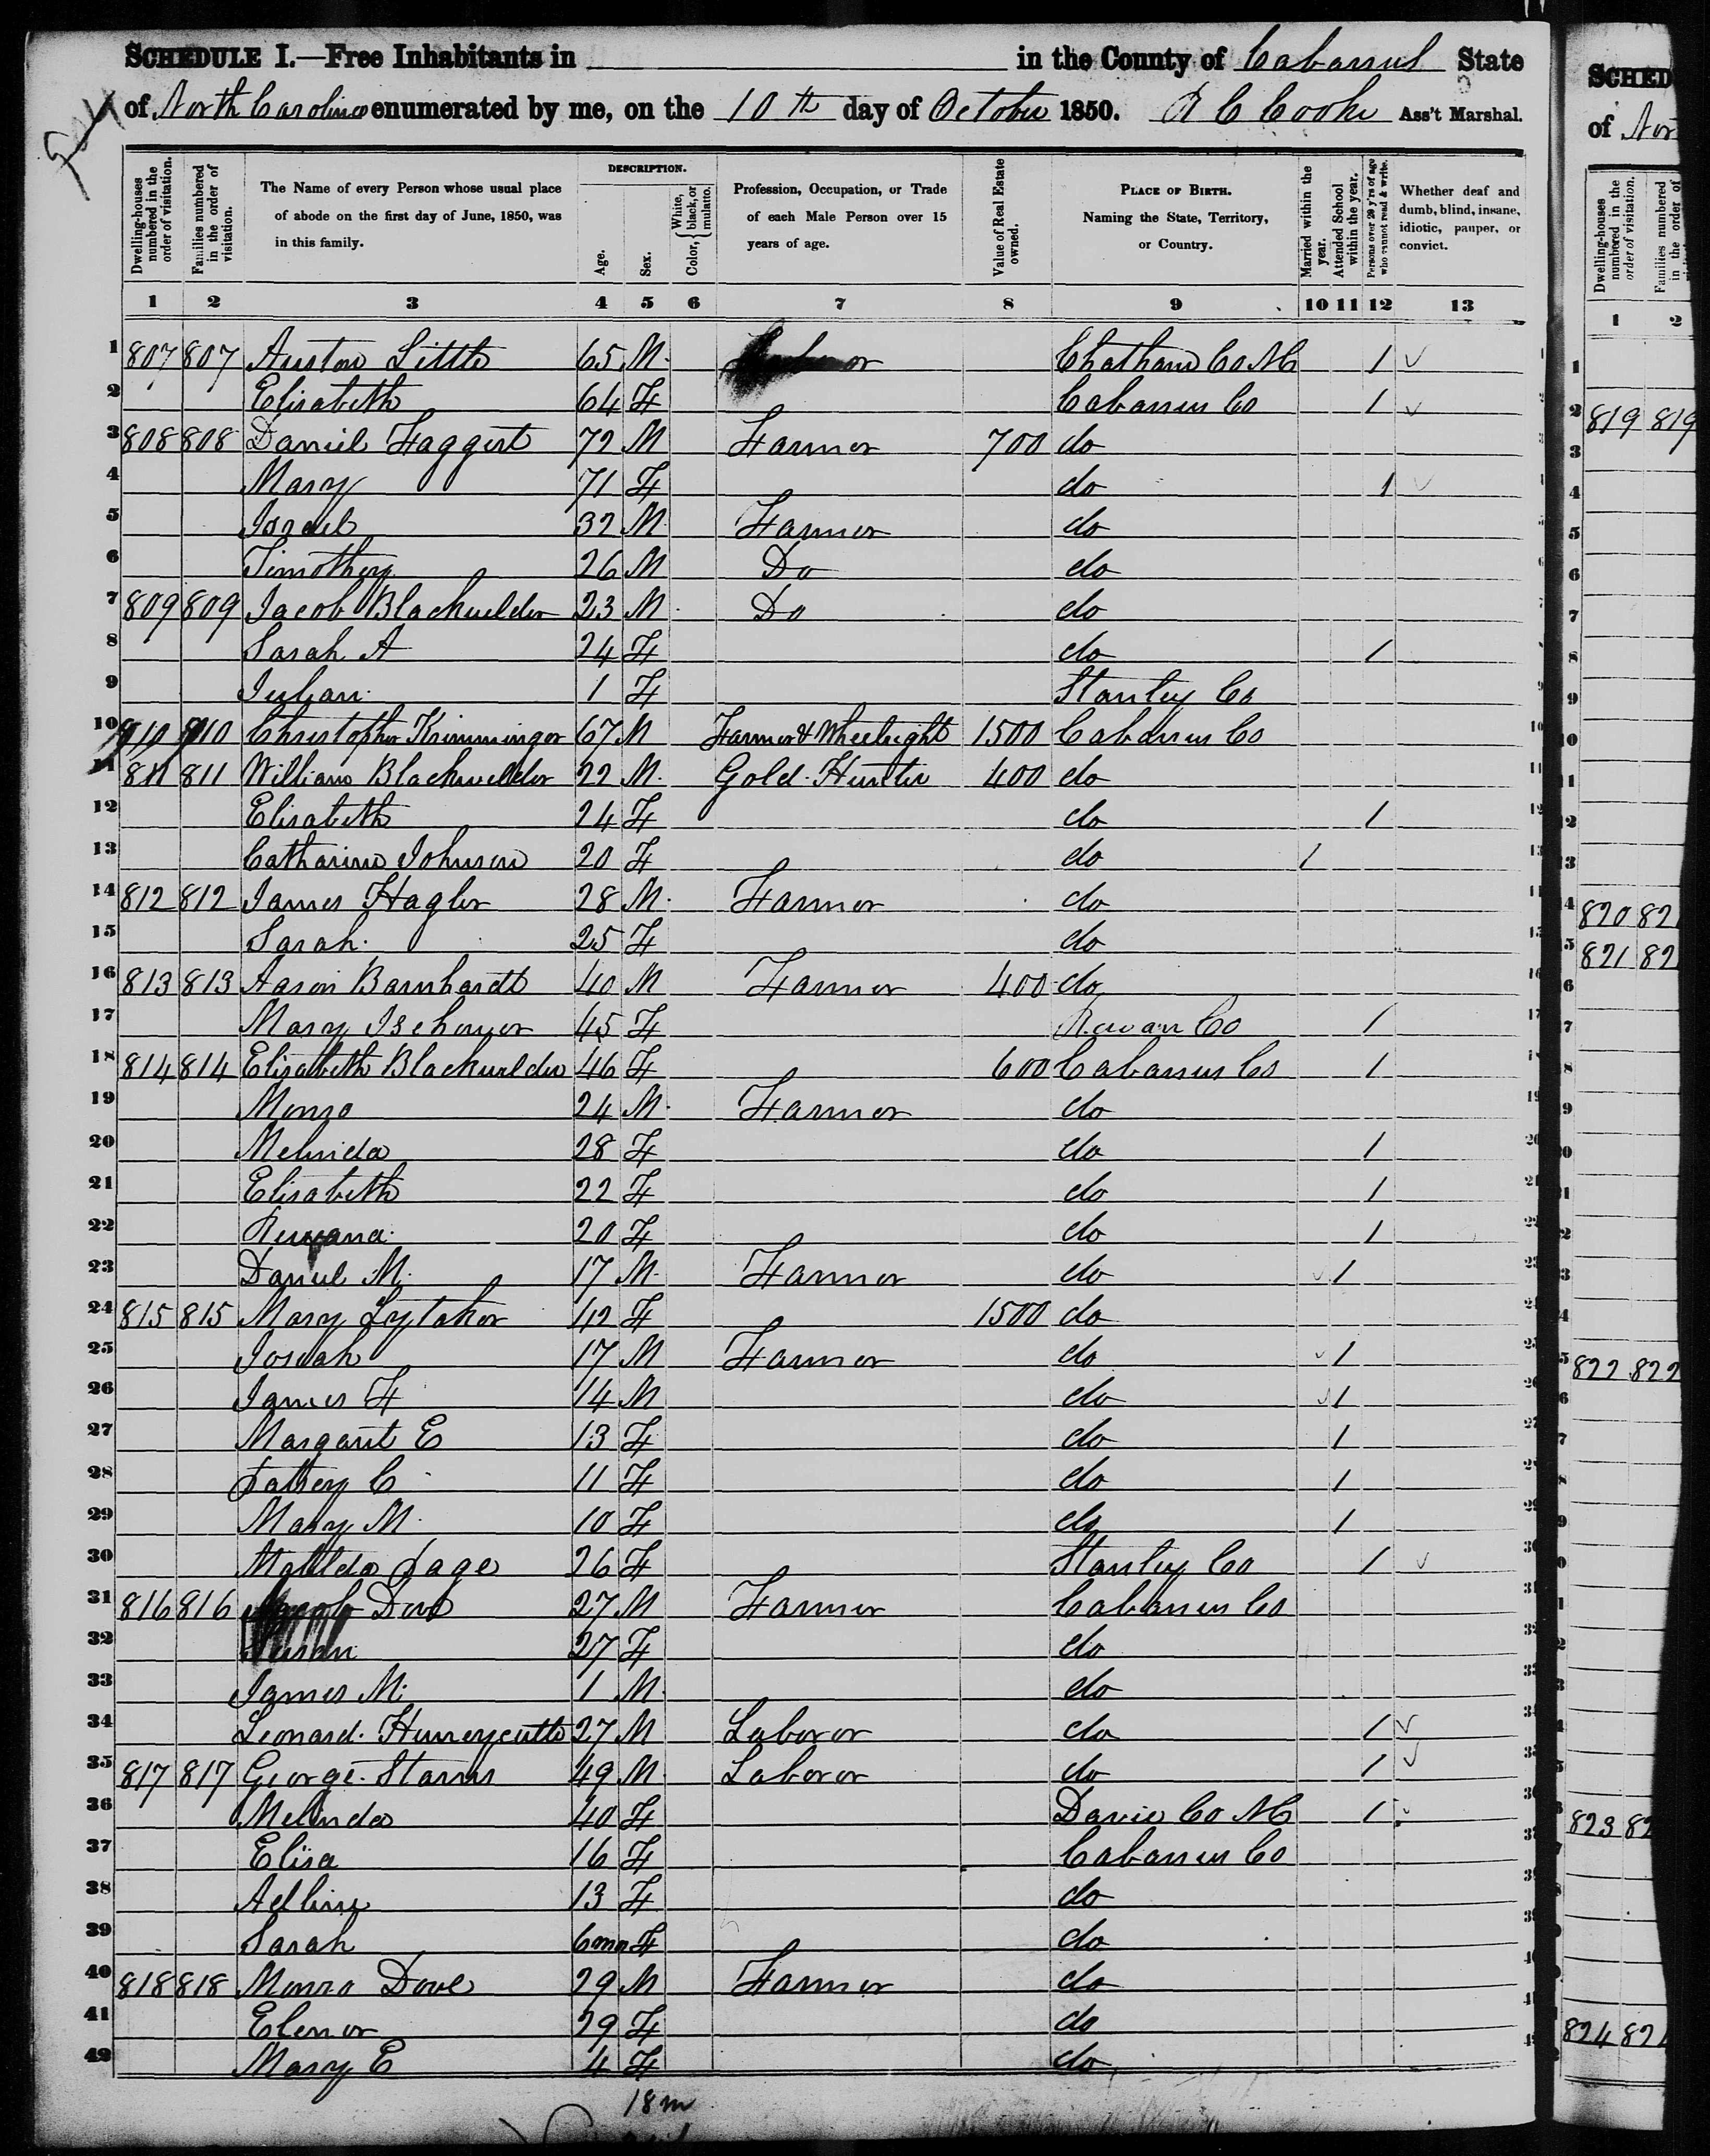 SCHEDULE I.—Free Inhabitants in in the County of Cabarrus State
of North Carolina enumerated by me, on the 10th day of October 1850. R C Cooke Ass't Marshal.
Dwelling-houses numbered in the order of visitation. Families numbered in the order of visitation. The Name of every Person whose usual place of abode on the first day of June, 1850, was in this family. DESCRIPTION. Age. Sex. Color, { White, black, or mulatto. Profession, Occupation, or Trade of each Male Person over 15 years of age. Value of Real Estate owned. PLACE OF BIRTH. Naming the State, Territory, or Country. Married within the year. Attended School within the year. Persons over 20 y'rs of age who cannot read & write. Whether deaf and dumb, blind, insane, idiotic, pauper, or convict.
1 2 3 4 5 6 7 8 9 10 11 12 13
1 807 807 Auston Little 65 M Chatham Co NC 1
2 Elisabeth 64 F Cabarrus Co 1
3 808 808 Daniel Faggert 72 M Farmer 700 do
4 Mary 71 F do 1
5 Israel 32 M Farmer do
6 Timothy 26 M Do do
7 809 809 Jacob Blackwelder 23 M Do do
8 Sarah A 24 F do 1
9 Julian 1 F Stanley Co
10 810 810 Christopher Krimminger 67 M Farmer & Wheelright 1500 Cabarrus Co
11 811 811 William Blackwelder 22 M Gold Hunter 400 do
12 Elisabeth 24 F do 1
13 Catharine Johnson 20 F do 1
14 812 812 James Hagler 28 M Farmer do
15 Sarah 25 F do
16 813 813 Aaron Barnhardt 40 M Farmer 400 do
17 Mary 45 F Rowan Co 1
18 814 814 Elisabeth Blackwelder 46 F 600 Cabarrus Co 1
19 Monro 24 M Farmer do
20 Melinda 28 F do 1
21 Elisabeth 22 F do 1
22 20 F do 1
23 Daniel M 17 M Farmer do 1
24 815 815 Mary Lytaker 42 F 1500 do
25 Josiah 17 M Farmer do 1
26 James F 14 M do 1
27 Margaret E 13 F do 1
28 Patsey C 11 F do 1
29 Mary M 10 F do 1
30 Matilda Page 26 F Stanley Co 1
31 816 816 Jacob Dove 27 M Farmer Cabarrus Co
32 Susan 27 F do
33 James M 1 M do
34 Leonard Huneycutte 27 M Laboror do 1
35 817 817 George Starns 49 M Laboror do 1
36 Melinda 40 F Davie Co NC 1
37 Elisa 16 F Cabarrus Co
38 Adline 13 F do
39 Sarah 6mo F do
40 818 818 Monro Dove 29 M Farmer do
41 Elenor 29 F do
42 Mary E 4 F do
18 m
SCHED
of Nor
Dwelling-houses numbered in the order of visitation. Families numbered in the order of
1 2
819 819
820 82
821 82
822 822
823 82
824 824